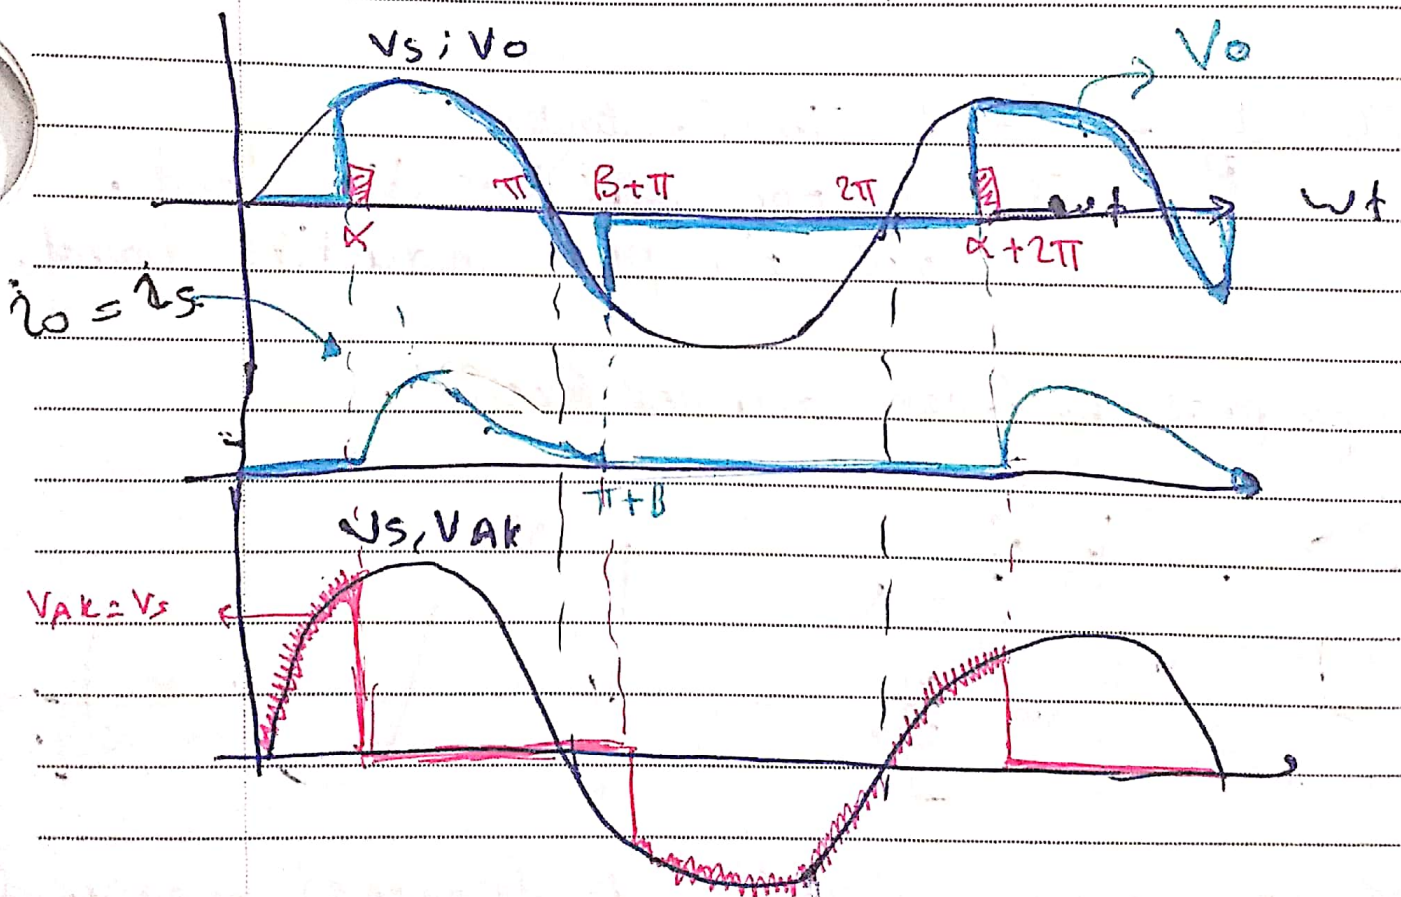 Vs ; Vo
Vo
π
β+π
2π
ωt
α
α+2π
io = is
π+β
Vs, VAK
VAK = Vs